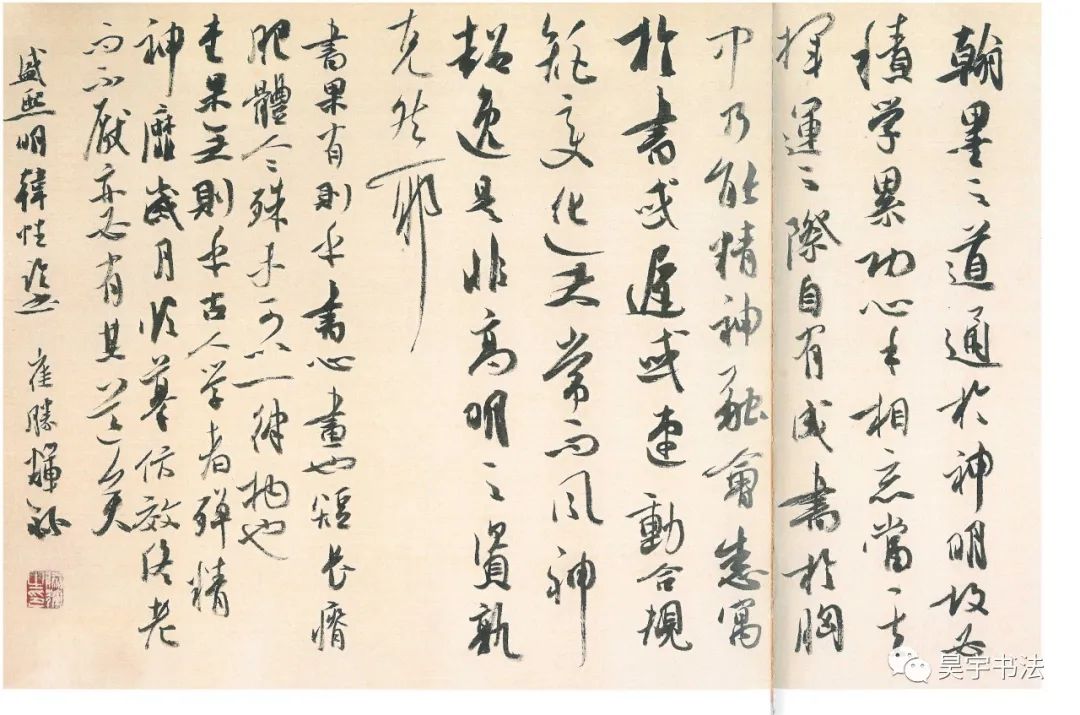 翰墨之道通於神明故必
積学累功心手相忘當其
揮運之際自有成書於胸
中乃能精神融會悉寓
於書或遲或速動合規
矩變化無常而風神
超逸是非高明之資孰
克然耶
書果有則乎書心畫也短長瘠
肥體人人殊未可以一律拘也
書果無則乎古人学者殫精
神靡歲月臨摹仿效終老
而不厭亦必有其道矣
盛熙明韓性論書 崔勝輝
昊宇书法